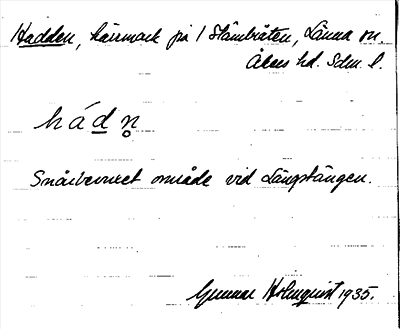 Hadden, kärrmark på 1 Stämbråten, Länna sn.
Åkers hd. Sdm. l.
h á d n̥
Snårbevuxet område vid Långstången.
Gunnar Holmquist 1935.